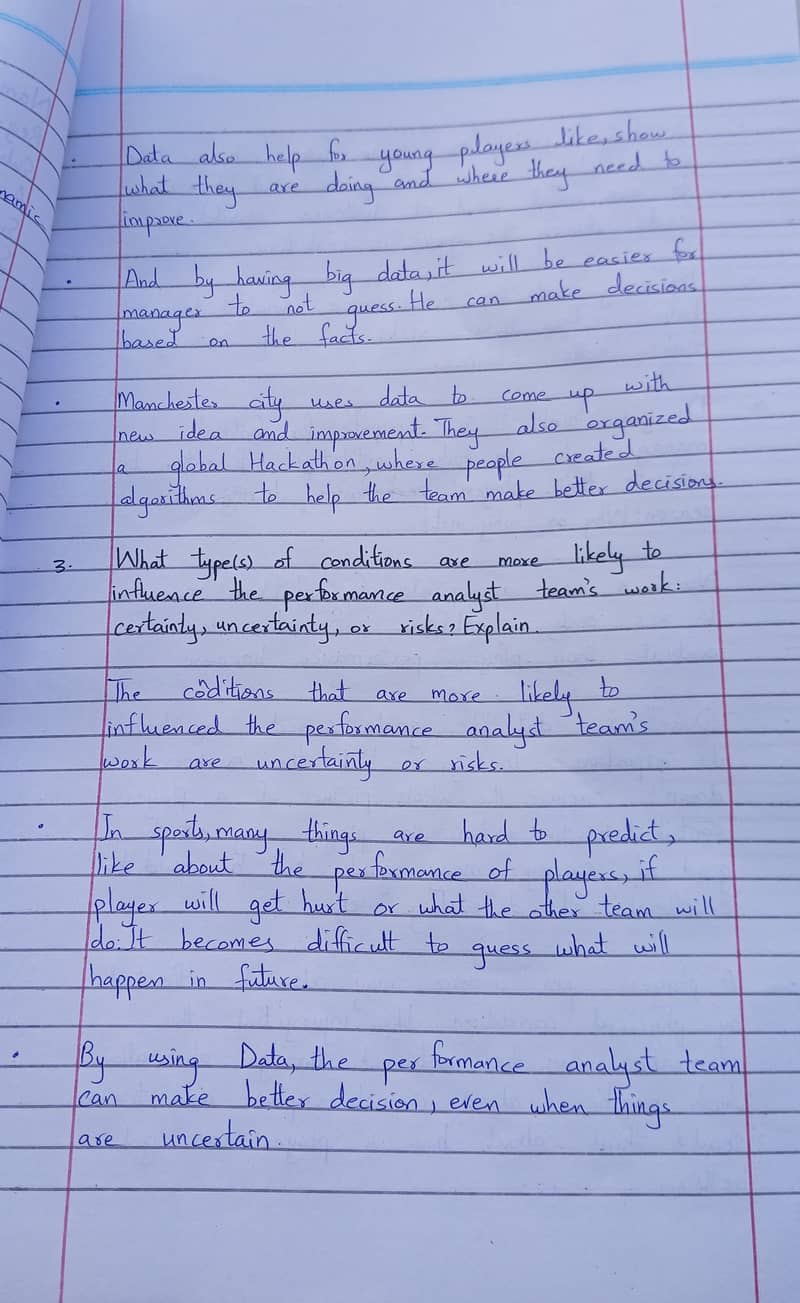 • Data also help for young players like, show
what they are doing and where they need to
improve.
• And by having big data, it will be easier for
manager to not guess. He can make decisions
based on the facts.
• Manchester city uses data to come up with
new idea and improvement. They also organized
a global Hackathon, where people created
algorithms to help the team make better decisions.
3. What type(s) of conditions are more likely to
influence the performance analyst team's work:
certainty, uncertainty, or risks? Explain.
The coditions that are more likely to
influenced the performance analyst team's
work are uncertainty or risks.
• In sports, many things are hard to predict,
like about the performance of players, if
player will get hurt or what the other team will
do. It becomes difficult to guess what will
happen in future.
• By using Data, the performance analyst team
can make better decision, even when things
are uncertain.